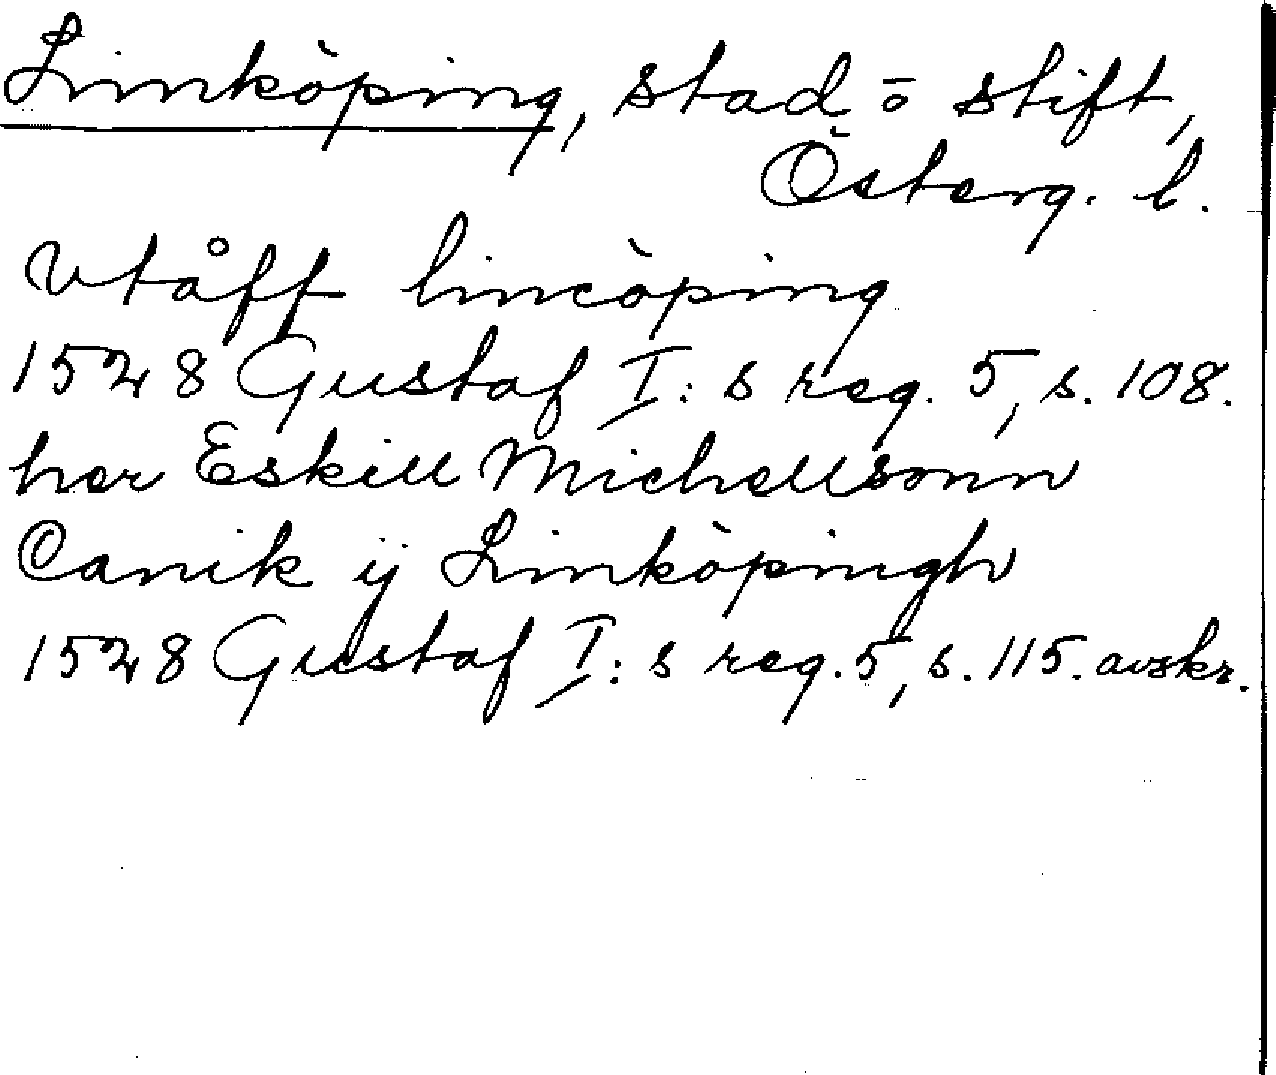 Linköping, stad ō stift,
Österg. l.
Vtåff lincöping
1528 Gustaf I:s reg. 5, s. 108.
her Eskill Michellsonn
Canik ij Linköpingh
1528 Gustaf I:s reg. 5, s. 115. avskr.